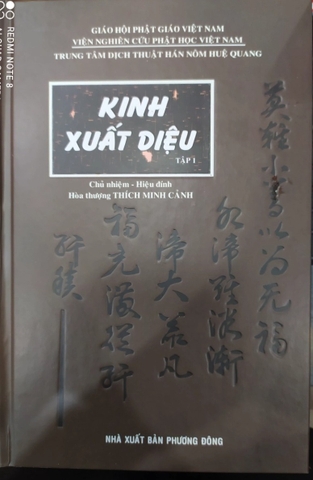 REDMI NOTE 8
GIÁO HỘI PHẬT GIÁO VIỆT NAM
VIỆN NGHIÊN CỨU PHẬT HỌC VIỆT NAM
TRUNG TÂM DỊCH THUẬT HÁN NÔM HUỆ QUANG
KINH
XUẤT DIỆU
TẬP 1
Chủ nhiệm - Hiệu đính
Hòa thượng THÍCH MINH CẢNH
小善以为无福
水渧雖微漸
大器凡
福充滿從纖
纖積
NHÀ XUẤT BẢN PHƯƠNG ĐÔNG